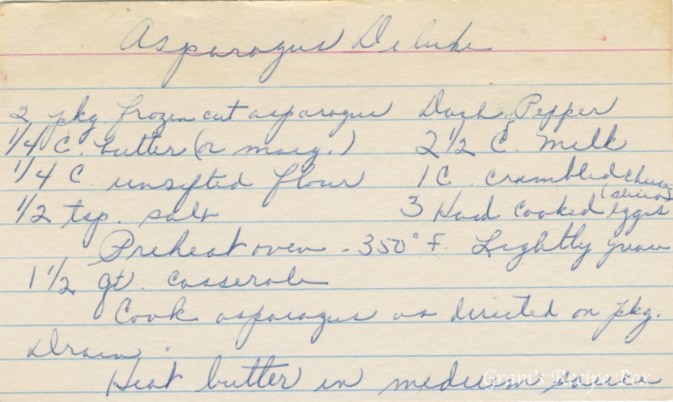 Asparagus Deluxe
2 pkg frozen cut asparagus Dash Pepper
1/4 C. butter (or marg.) 2 1/2 C. Milk
1/4 C. unsifted flour 1 C. crumbled cheese
1/2 tsp. salt 3 Hard Cooked eggs (sliced)
Preheat oven - 350° F. Lightly grease
1 1/2 qt. casserole
Cook asparagus as directed on pkg.
Drain.
Heat butter in medium sauce
Gram's Recipe Box